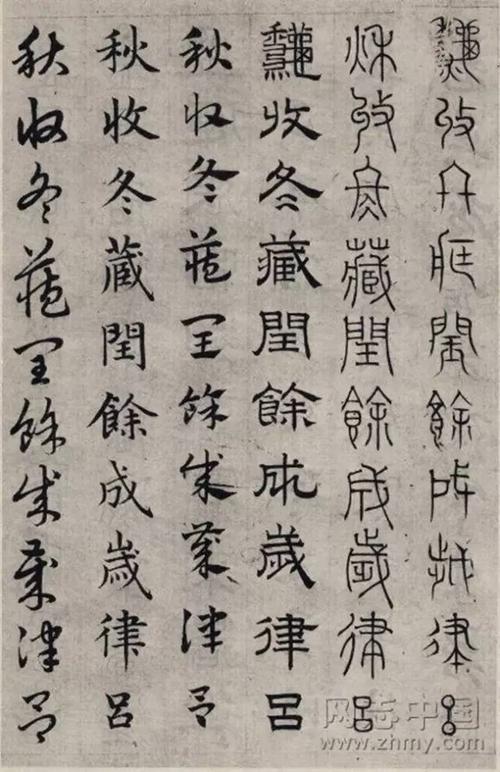 秋收冬藏閏餘成歲律呂
秋收冬藏閏餘成歲律呂
秋收冬藏閏餘成歲律呂
秋收冬藏閏餘成歲律呂
秋收冬藏閏餘成歲律呂
秋收冬藏閏餘成歲律呂
网志中国
www.zhmy.com